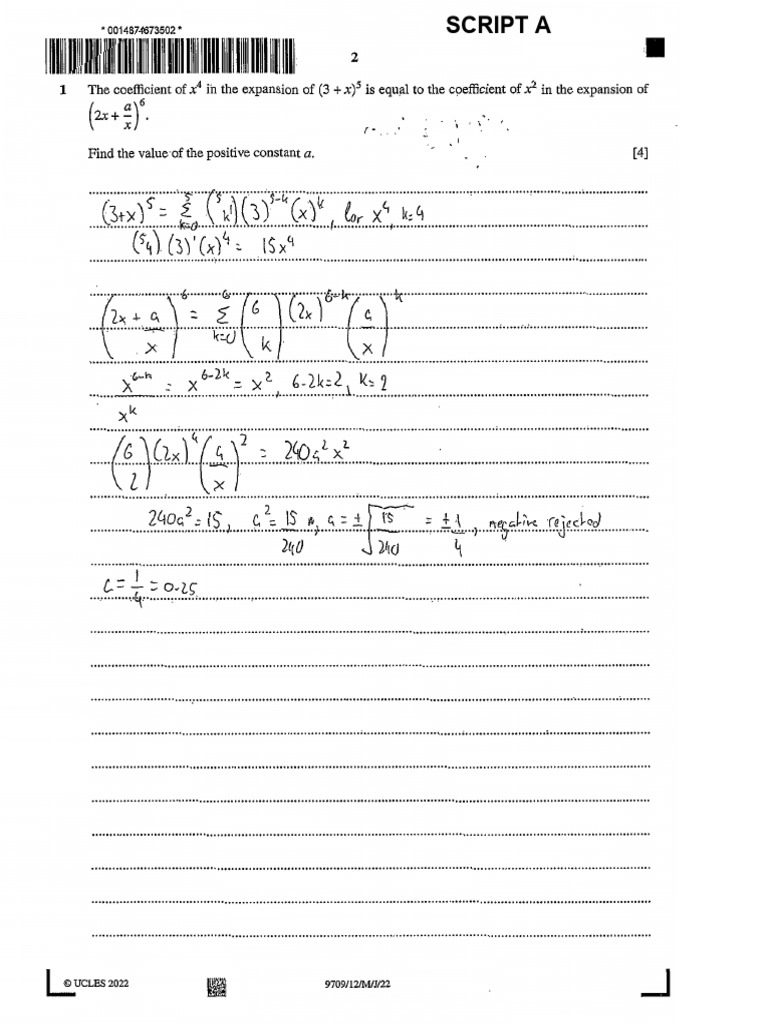 * 0014874673502 *
SCRIPT A
2
1 The coefficient of x⁴ in the expansion of (3 + x)⁵ is equal to the coefficient of x² in the expansion of
(2x + a/x)⁶.
Find the value of the positive constant a. [4]
(3+x)⁵ = Σ_{k=0}^{5} (5 k) (3)^{5-k} (x)^k, for x⁴, k=4
(5 4) (3)¹ (x)⁴ = 15x⁴
(2x + a/x)⁶ = Σ_{k=0}^{6} (6 k) (2x)^{6-k} (a/x)^k
x^{6-k}/x^k = x^{6-2k} = x², 6-2k=2, k=2
(6 2) (2x)⁴ (a/x)² = 240a²x²
240a² = 15, a² = 15/240, a = ±√(15/240) = ±1/4, negative rejected
a = 1/4 = 0.25
© UCLES 2022 9709/12/M/J/22